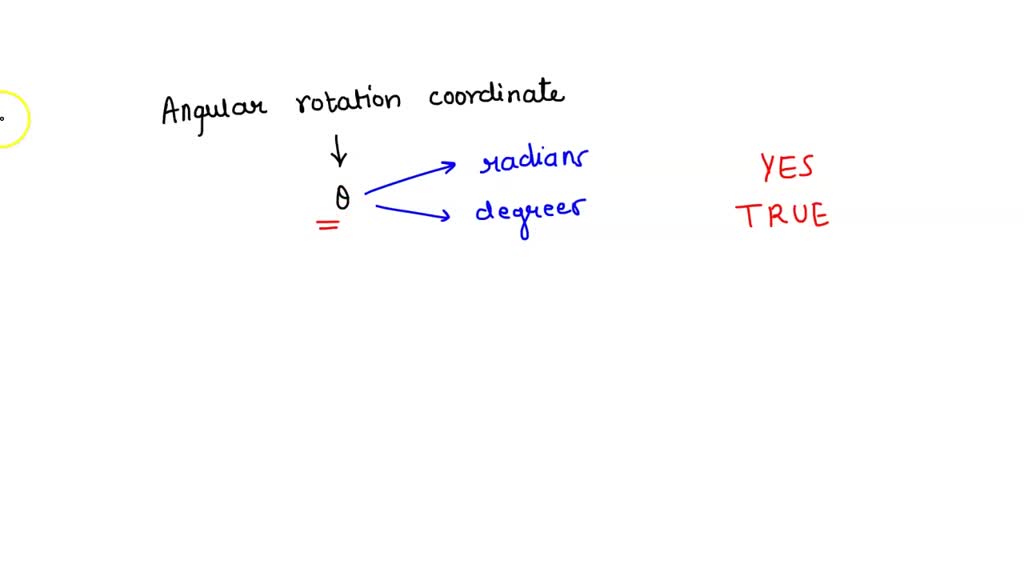 Angular rotation coordinate
↓
θ
radians
degrees
YES
TRUE